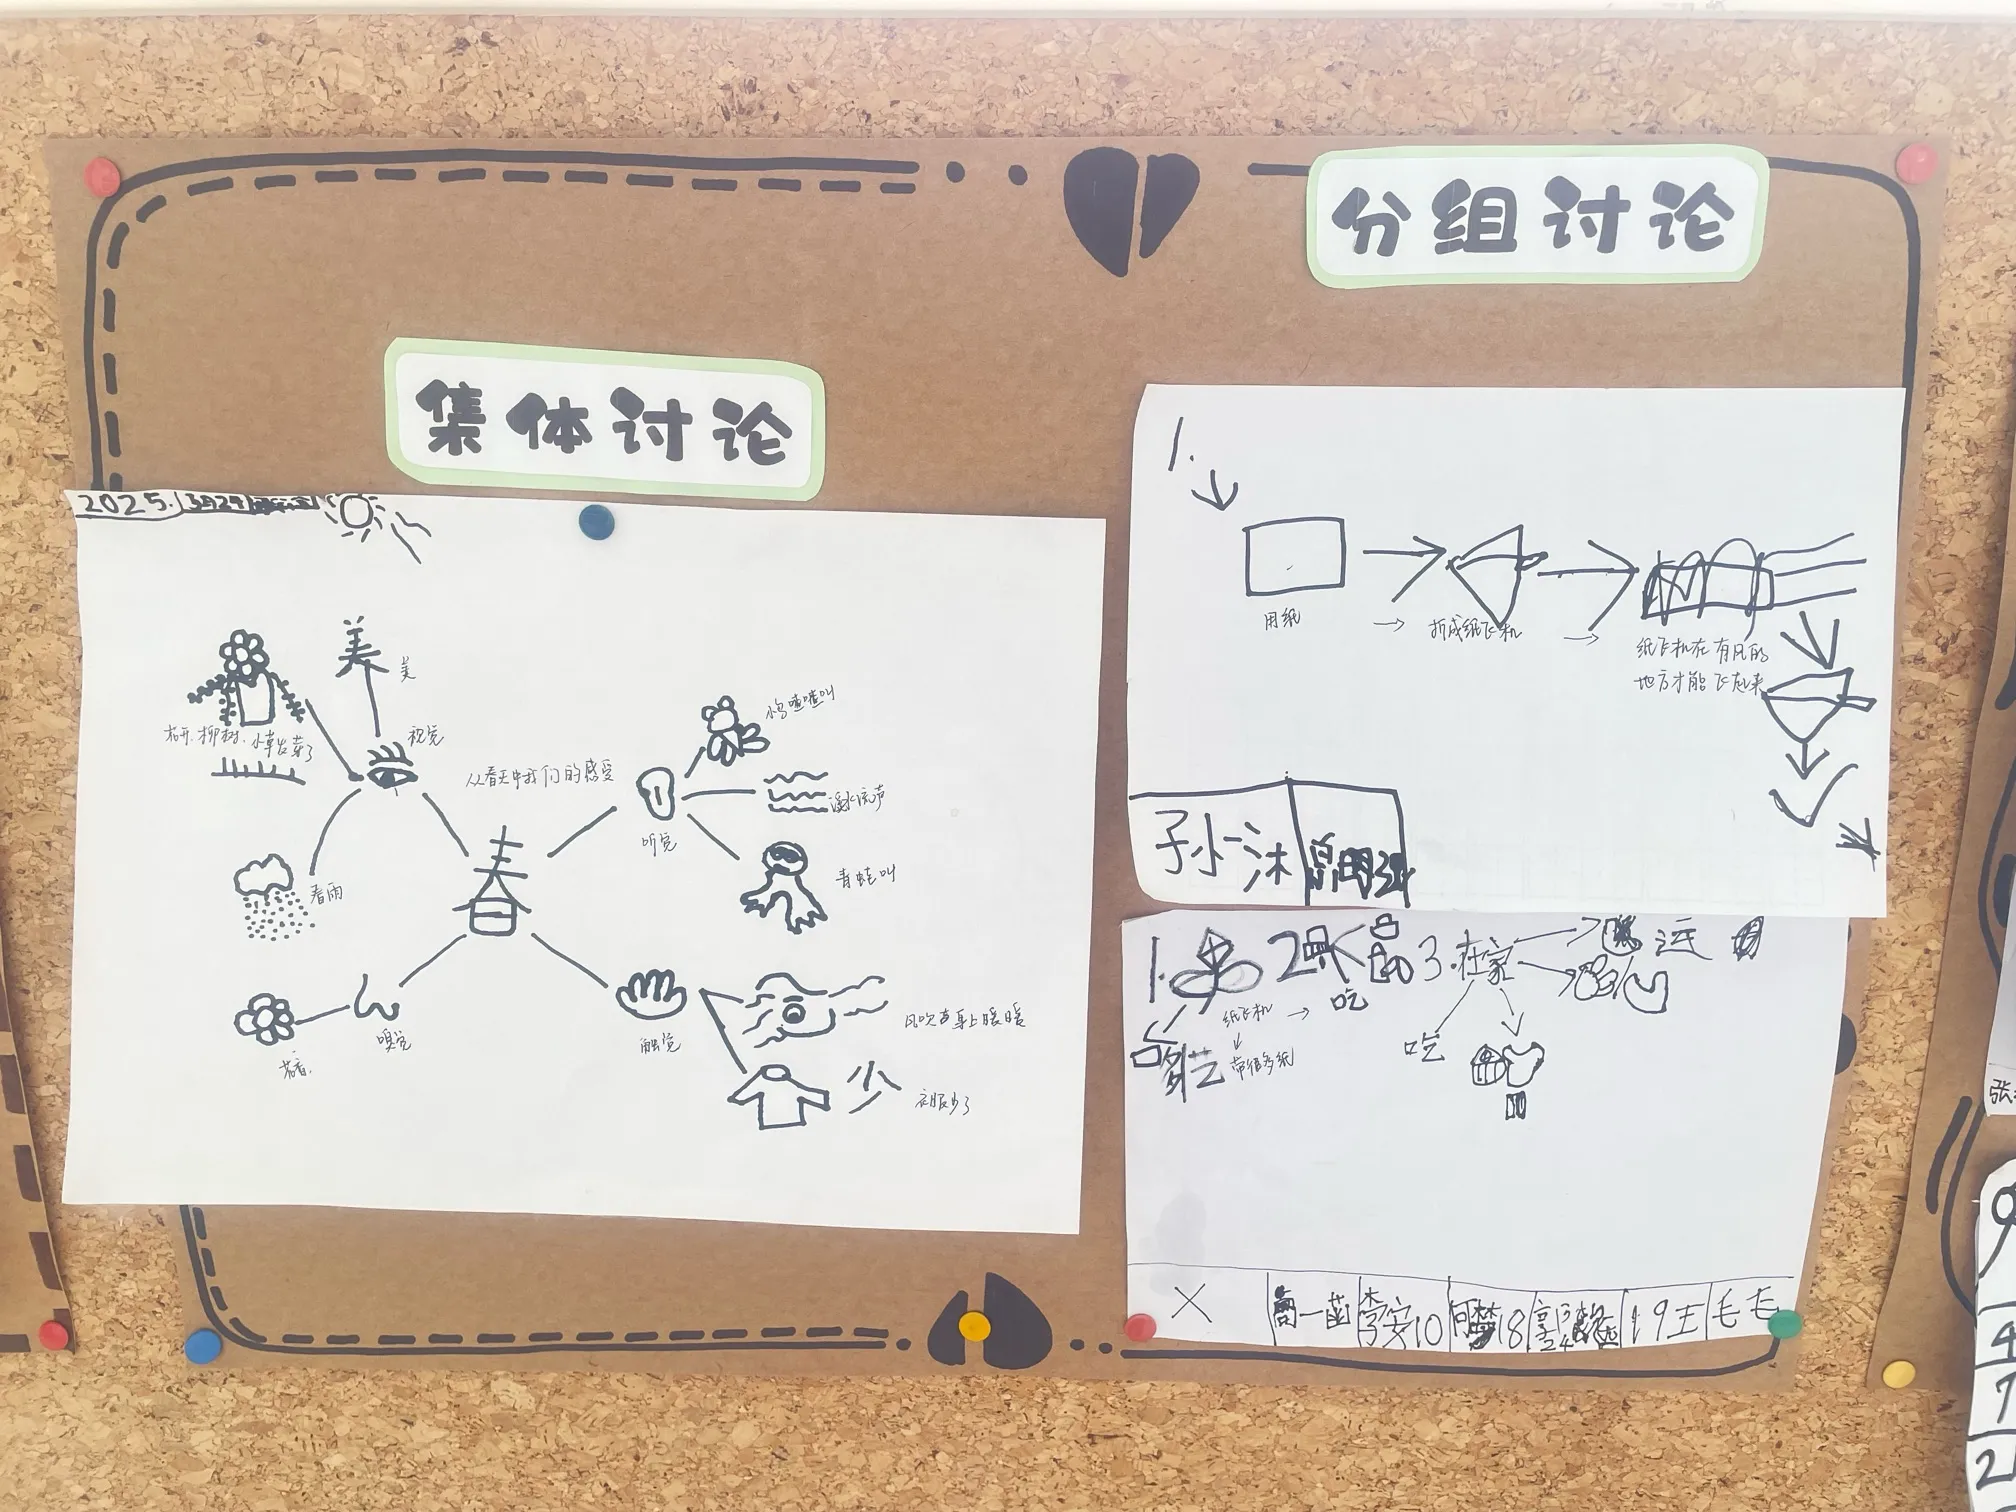 集体讨论
2025.3月24
美
美
视觉
柳树、小草发芽了
春雨
从春天中我们的感受
春
听觉
小鸟喳喳叫
溪水流声
青蛙叫
嗅觉
花香
触觉
风吹在身上暖暖
少
衣服少了
分组讨论
1.
用纸
→
折成纸飞机
→
纸飞机在有风的
地方才能飞起来
子小一沐
1.
2
3.在家
纸飞机
→
吃
带很多纸
吃
×
一菡
李安10
18
19王
毛毛
张
9
4
7
2